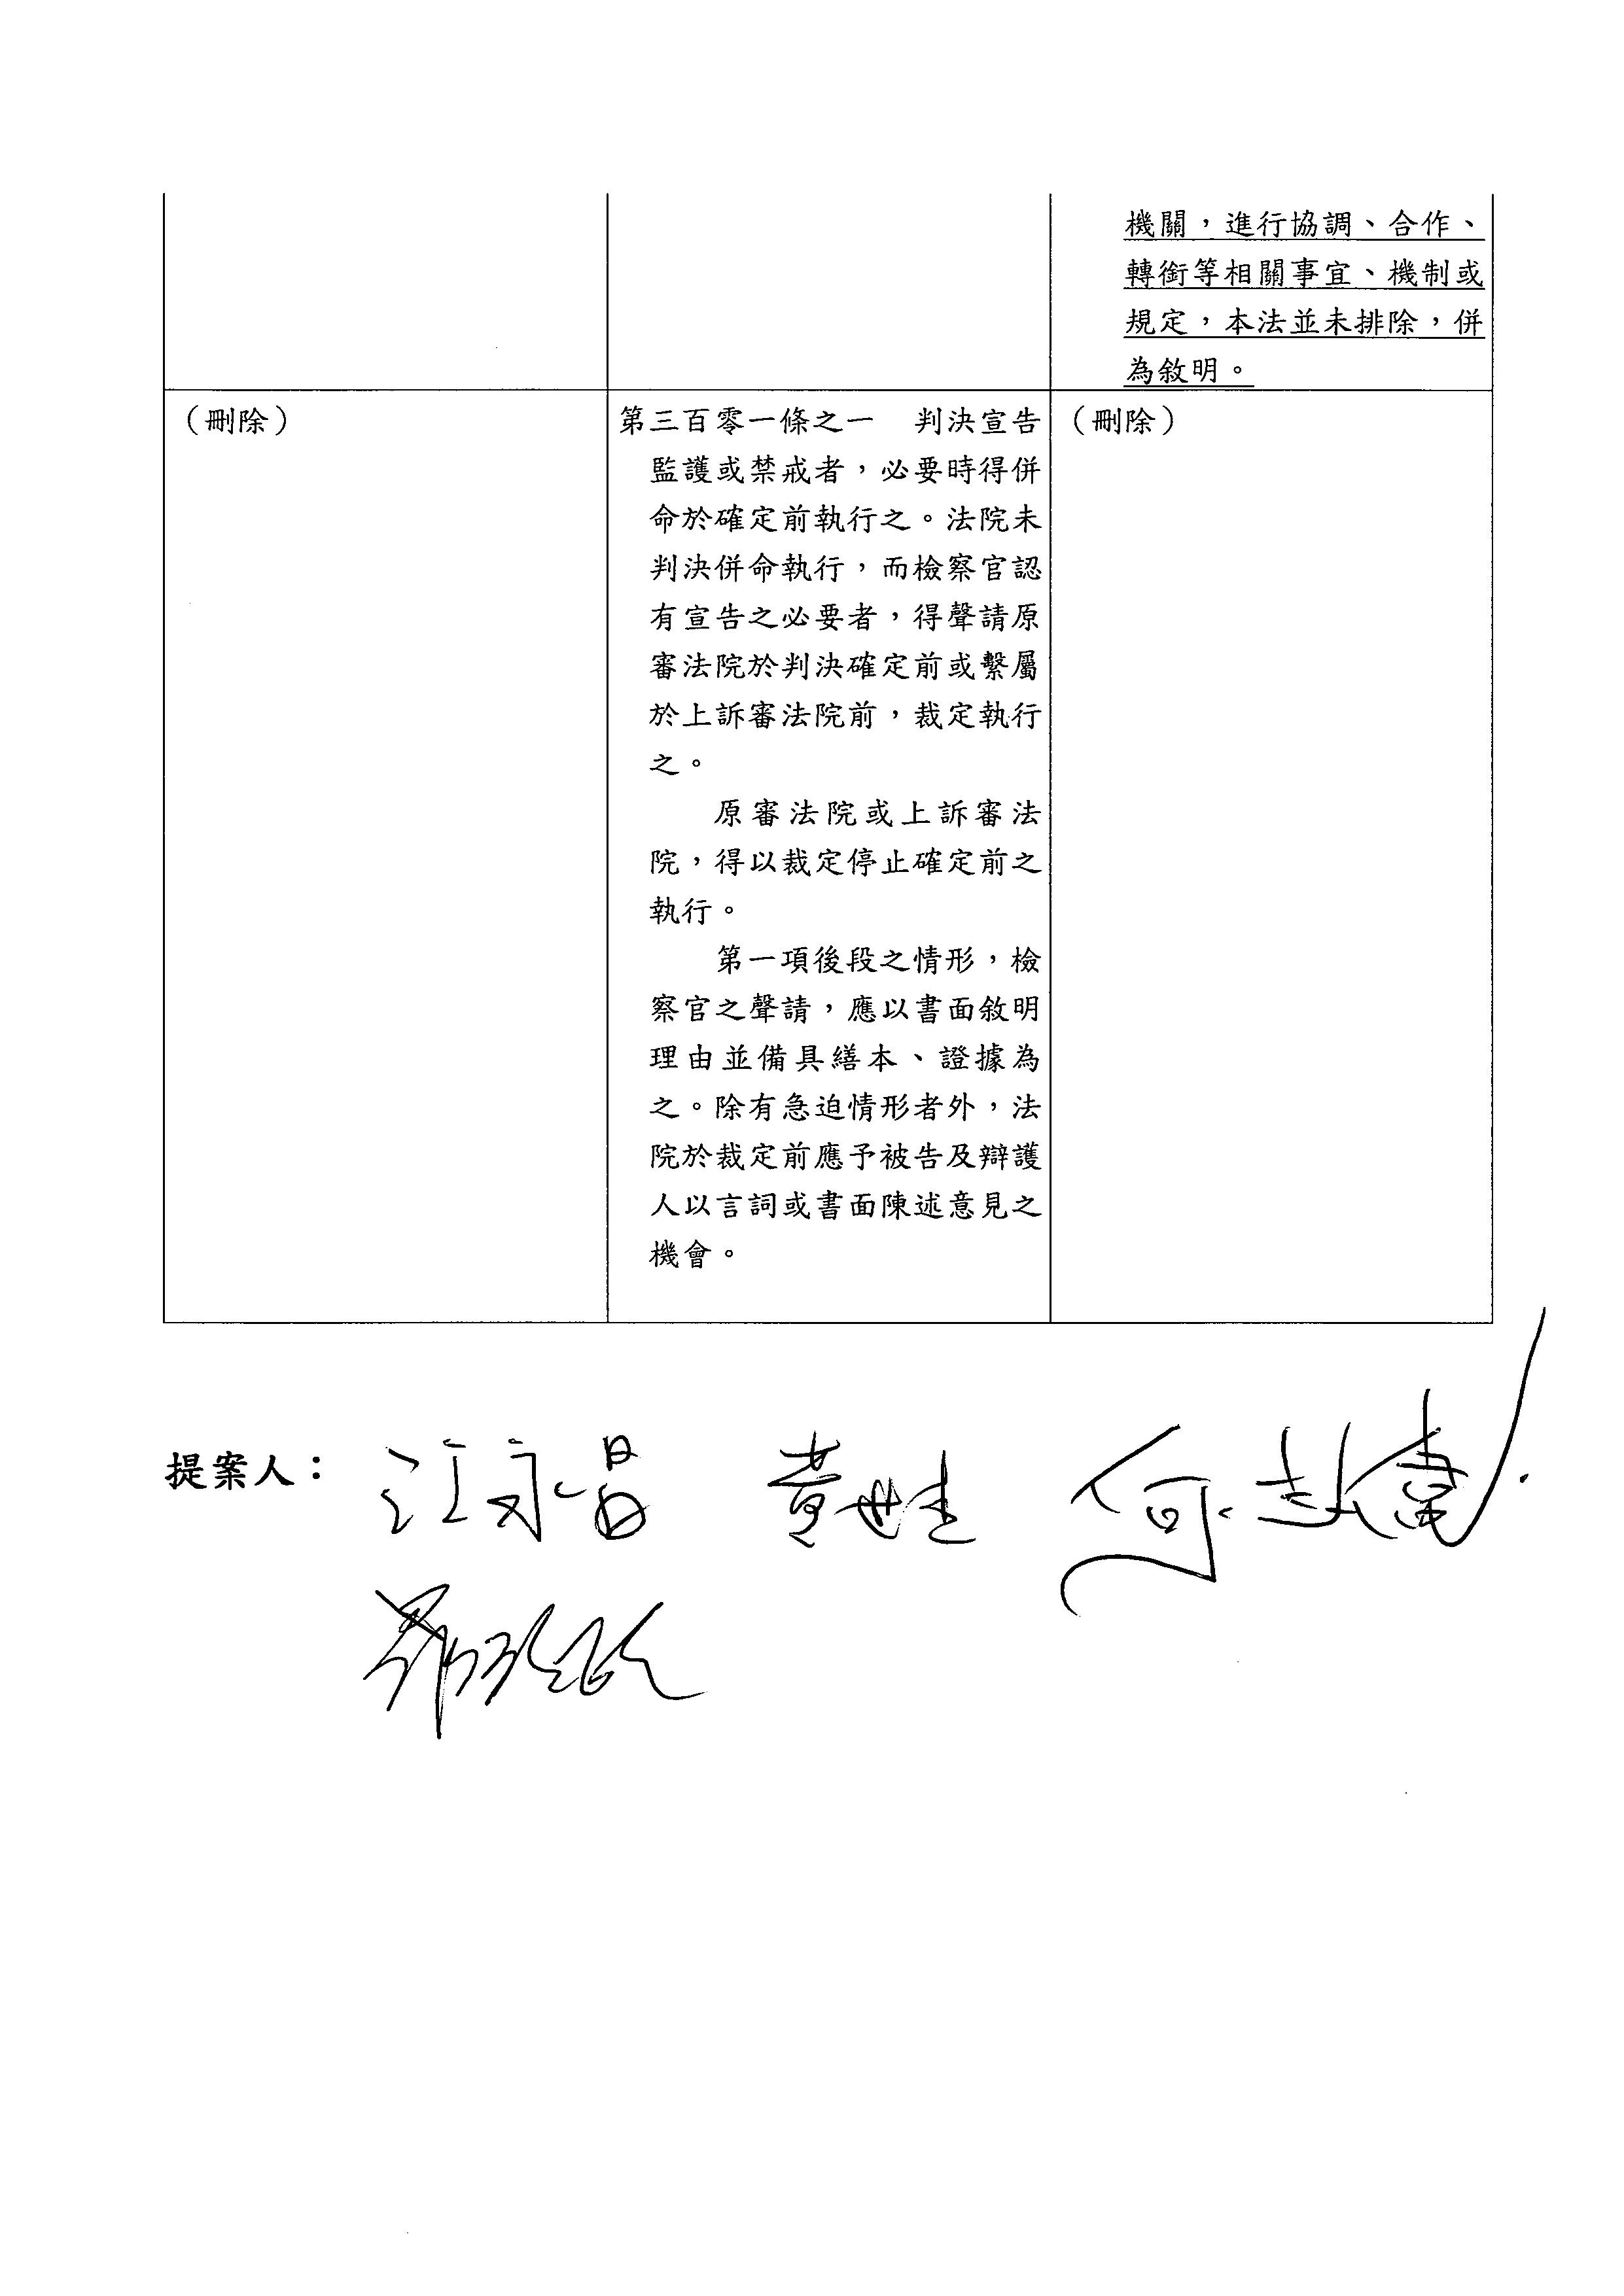 機關，進行協調、合作、
轉銜等相關事宜、機制或
規定，本法並未排除，併
為敘明。
（刪除）
第三百零一條之一　判決宣告
監護或禁戒者，必要時得併
命於確定前執行之。法院未
判決併命執行，而檢察官認
有宣告之必要者，得聲請原
審法院於判決確定前或繫屬
於上訴審法院前，裁定執行
之。
原審法院或上訴審法
院，得以裁定停止確定前之
執行。
第一項後段之情形，檢
察官之聲請，應以書面敘明
理由並備具繕本、證據為
之。除有急迫情形者外，法
院於裁定前應予被告及辯護
人以言詞或書面陳述意見之
機會。
（刪除）
提案人：江永昌　黃世杰　何志偉
羅致政